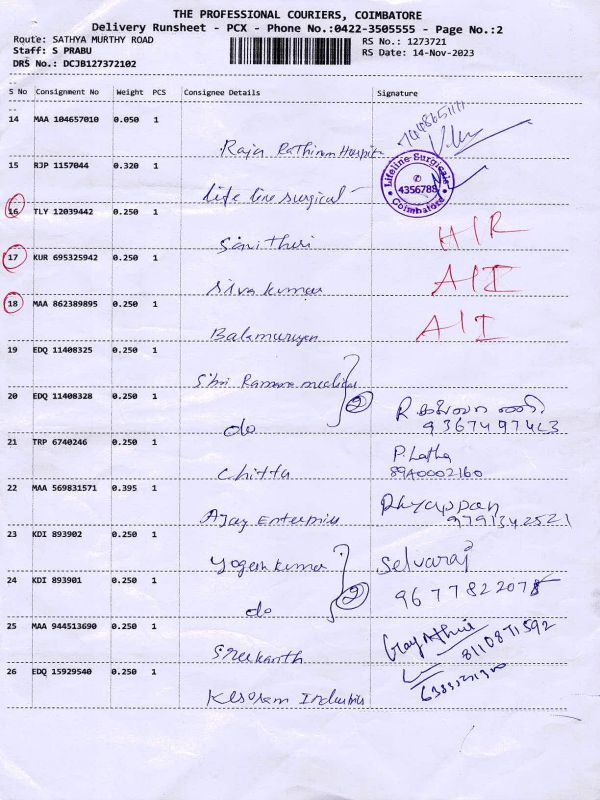 THE PROFESSIONAL COURIERS, COIMBATORE
Delivery Runsheet - PCX - Phone No.:0422-3505555 - Page No.:2
Route: SATHYA MURTHY ROAD
RS No.: 1273721
Staff: S PRABU
RS Date: 14-Nov-2023
DRS No.: DCJB127372102
S No Consignment No Weight PCS Consignee Details Signature
14 MAA 104657010 0.050 1
Raja Rathinam Hospital
15 RJP 1157044 0.320 1
Lifeline Surgicals
4356789
Coimbatore
Life line surgical
16 TLY 12039442 0.250 1
Savitheri
17 KUR 695325942 0.250 1
Siva kumar
A/I
18 MAA 862389895 0.250 1
Balamurugan
A/I
19 EDQ 11408325 0.250 1
Shri Ramana medical
20 EDQ 11408328 0.250 1
do
2
9367497423
21 TRP 6740246 0.250 1
Chitta
P. Latha
22 MAA 569831571 0.395 1
Ajay Enterprises
9791342521
23 KDI 893902 0.250 1
Yogesh kumar
Selvaraj
24 KDI 893901 0.250 1
do
2
9677822078
25 MAA 944513690 0.250 1
Sreekanth
8110871592
26 EDQ 15929540 0.250 1
Kesoram Industries